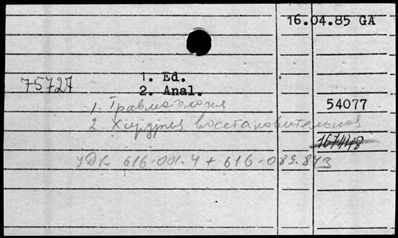 16.04.85 GA
75727
1. Ed.
2. Anal.
1. Травматология
54077
2. Хирургия восстановительная
167448
УДК 616-001.4 + 616-089.843